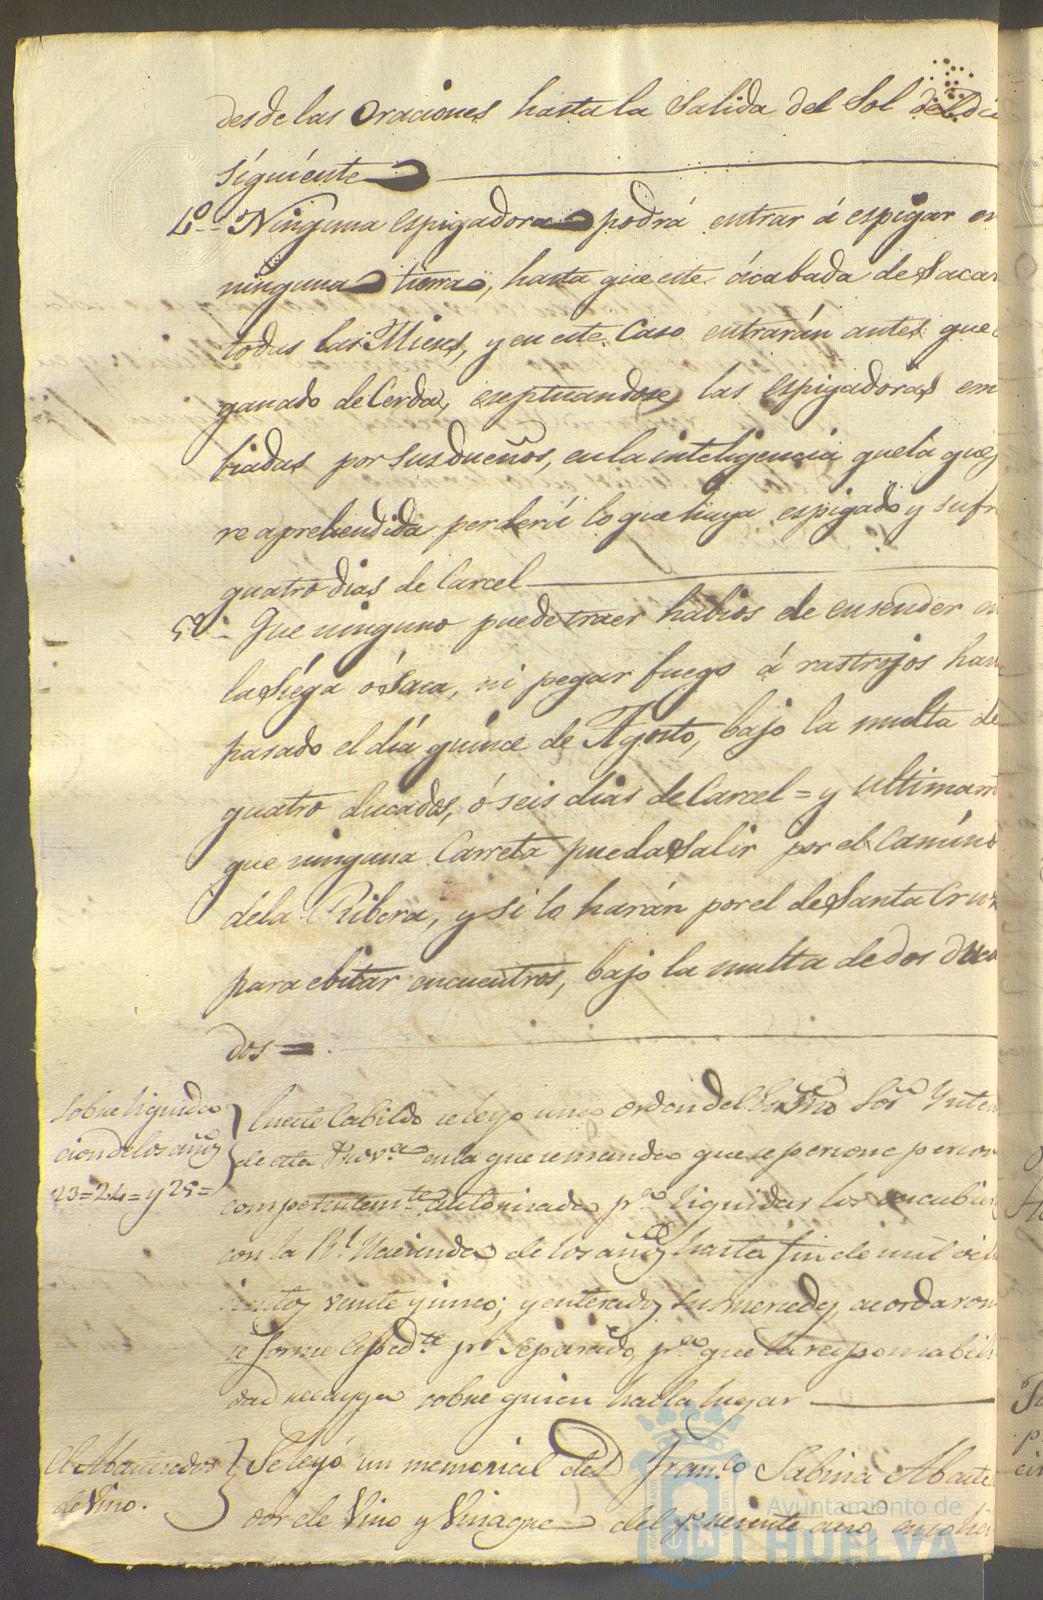 desde las Oraciones hasta la Salida del Sol del di
siguiente
4º Ninguna espigadora podrá entrar á espigar en
ninguna tierra, hasta que esté acabada de Sacar
todas las Mieses, y en este Caso entrarán antes que
ganado de Cerda, eseptuandose las espigadoras em
biadas por sus dueños, en la inteligencia que la que
re aprehendida perderá lo que haya espigado y sufr
quatro dias de Carcel
5º Que ninguno puede traer habios de ensender en
la Siega ó Saca, ni pegar fuego á rastrojos has
pasado el día quince de Agosto, bajo la multa de
quatro ducados, ó seis dias de Carcel = y ultimam
que ninguna Carreta pueda Salir por el Camino
déla Ribera, y si lo harán por el de Santa Cruz
para ebitar encuentros, bajo la multa de dos Duca
dos =
Sobre liquida
cion de los años
23=24= y 25=
En este Cabildo se leyo una orden del Sor Inten
de esta Prova en la que se manda que se persone person
competentemte autorizada pa liquidar los descubier
con la Rl Hacienda de los años hasta fin de mil och
cientos veinte y cinco; y enterados sus mercedes acordaron
se forme Espedte pr Separado pa que la responsabili
dad recayga sobre quien halla lugar
El Abastecedor
de Vino.
Se leyó un memorial del Franco Sabina Abaste
dor de Vino y Vinagre del presente año
Ayuntamiento de
HUELVA